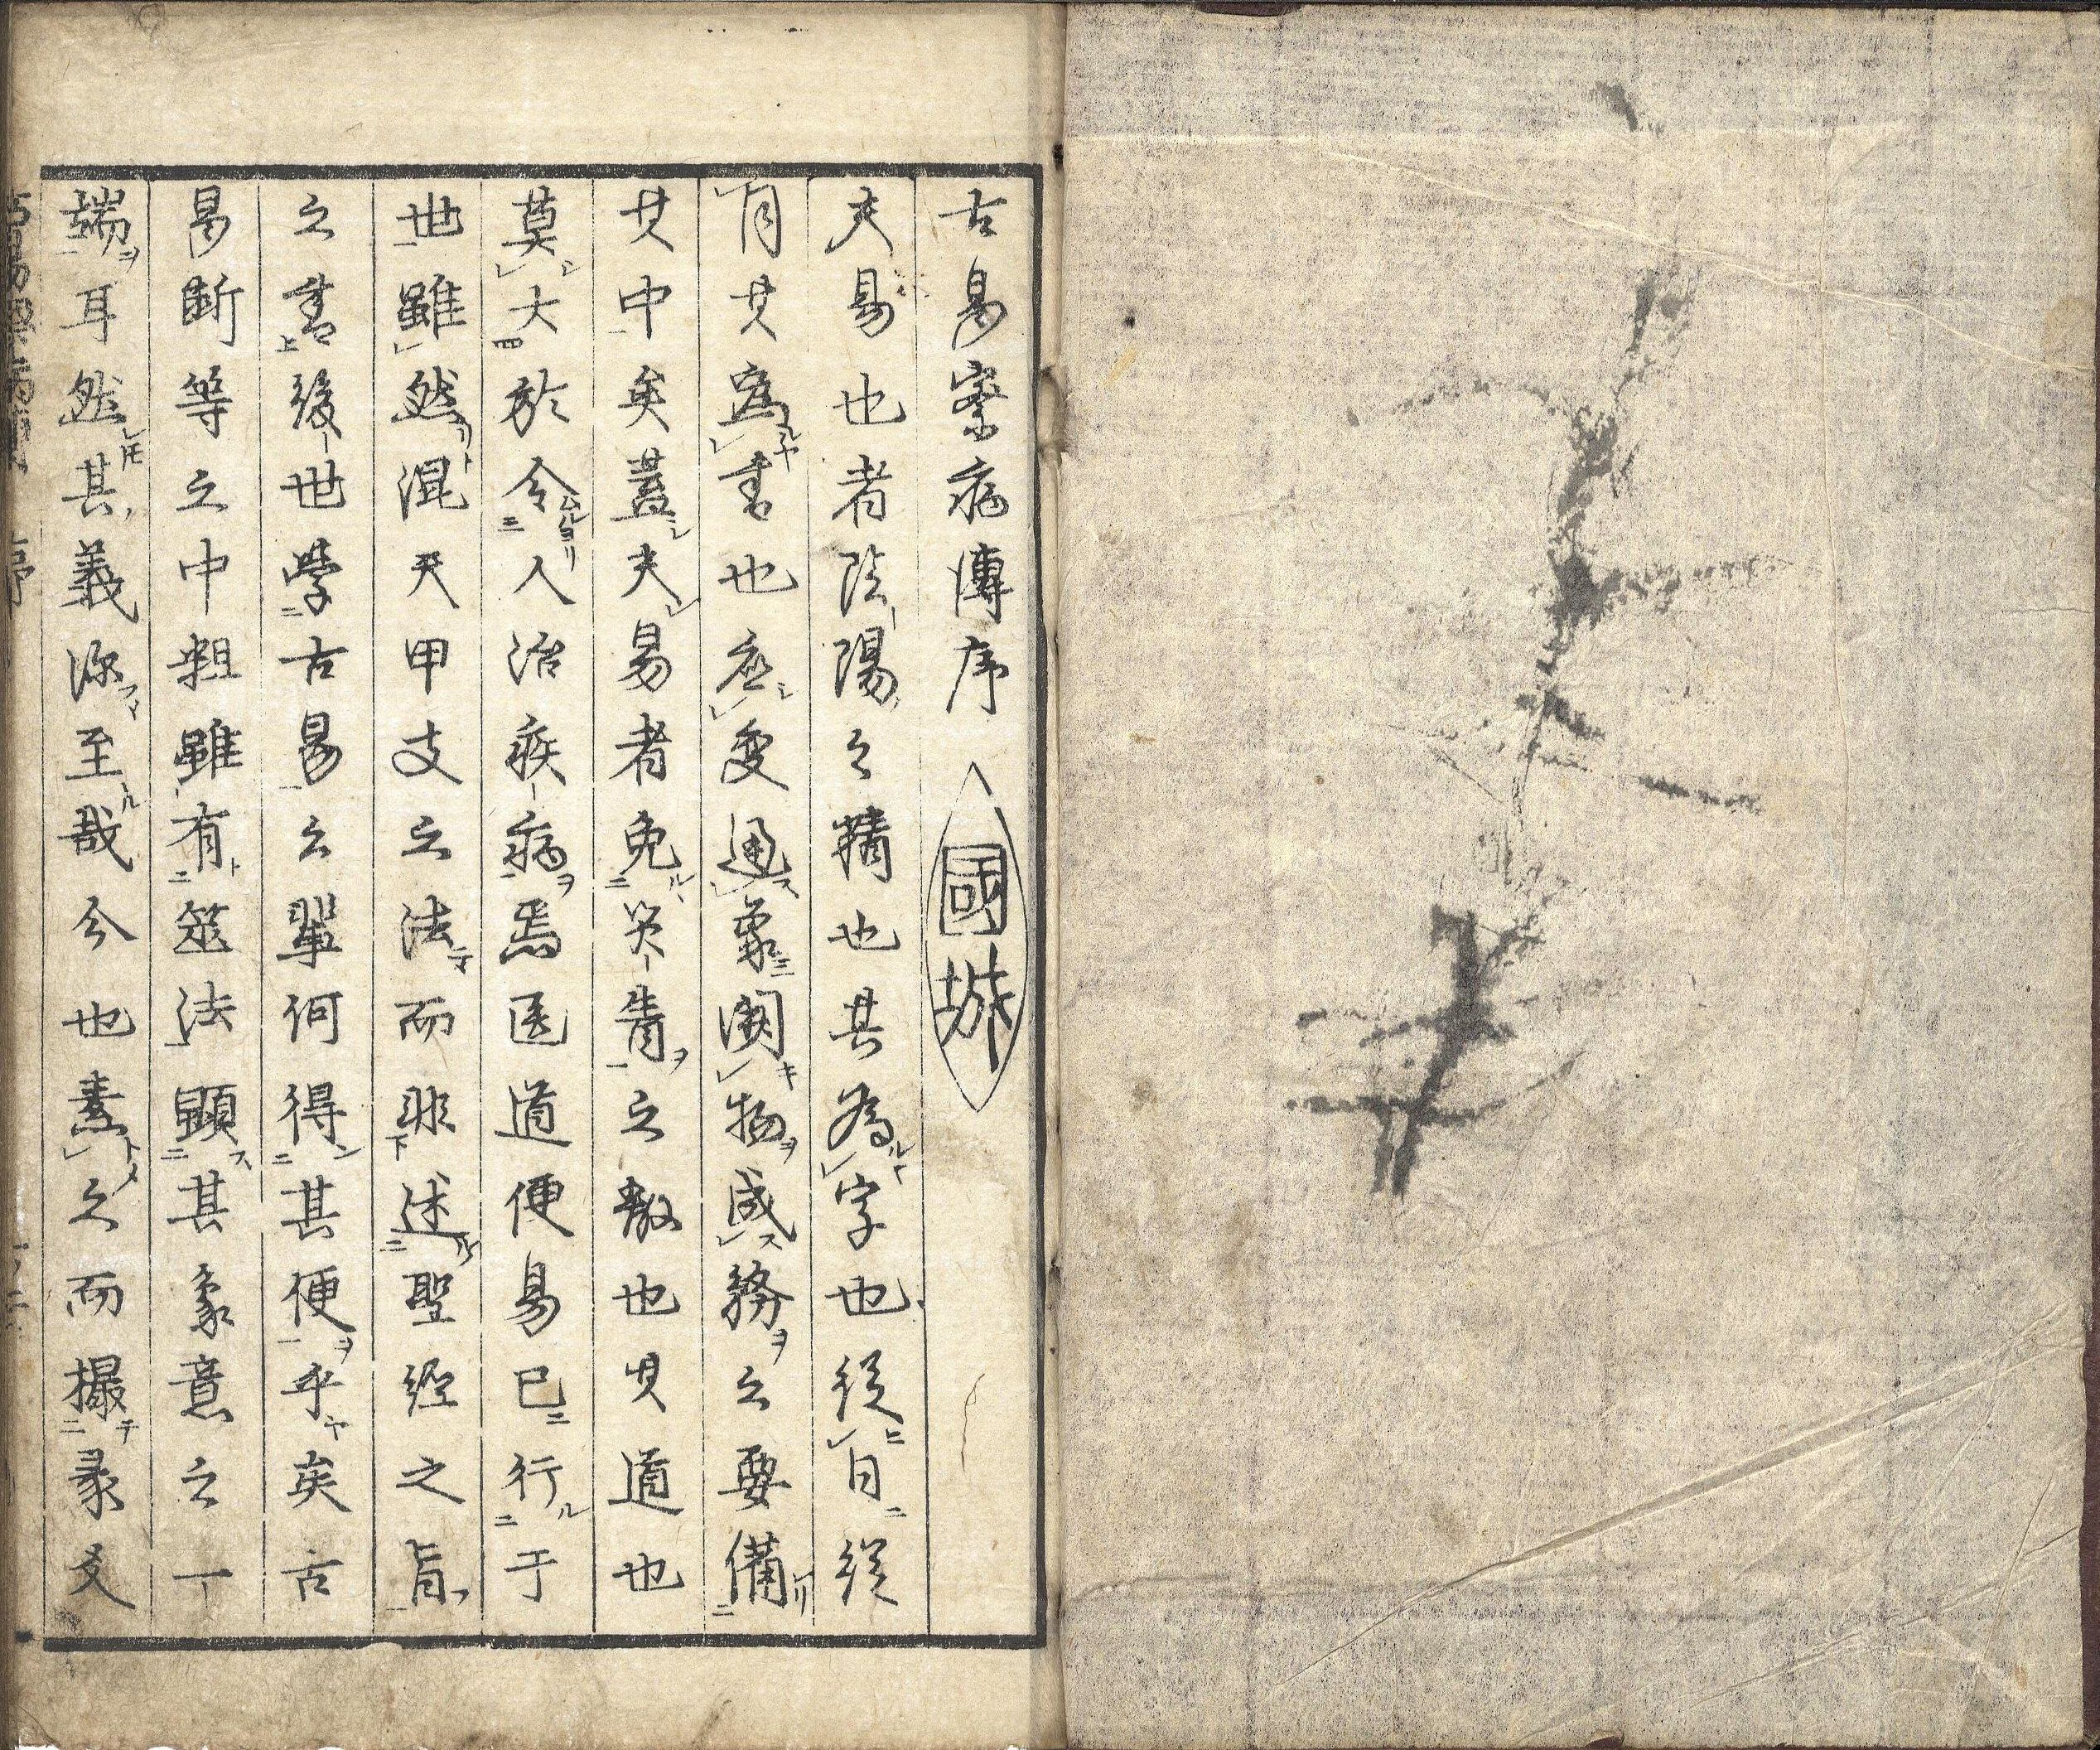 古易察病傳序 國城
夫易也者陰陽之精也其為字也従日従
月其為書也応変通象開物成務之要備
其中矣蓋夫易者免災眚之教也其道也
莫大於令人治疾病焉医道便易已行于
世雖然混天甲支之法而非述聖経之旨
之書後世学古易之輩何得其便乎矣古
易断等之中粗雖有筮法顕其象意之一
端耳然其義深至哉今也素之而撮彖爻